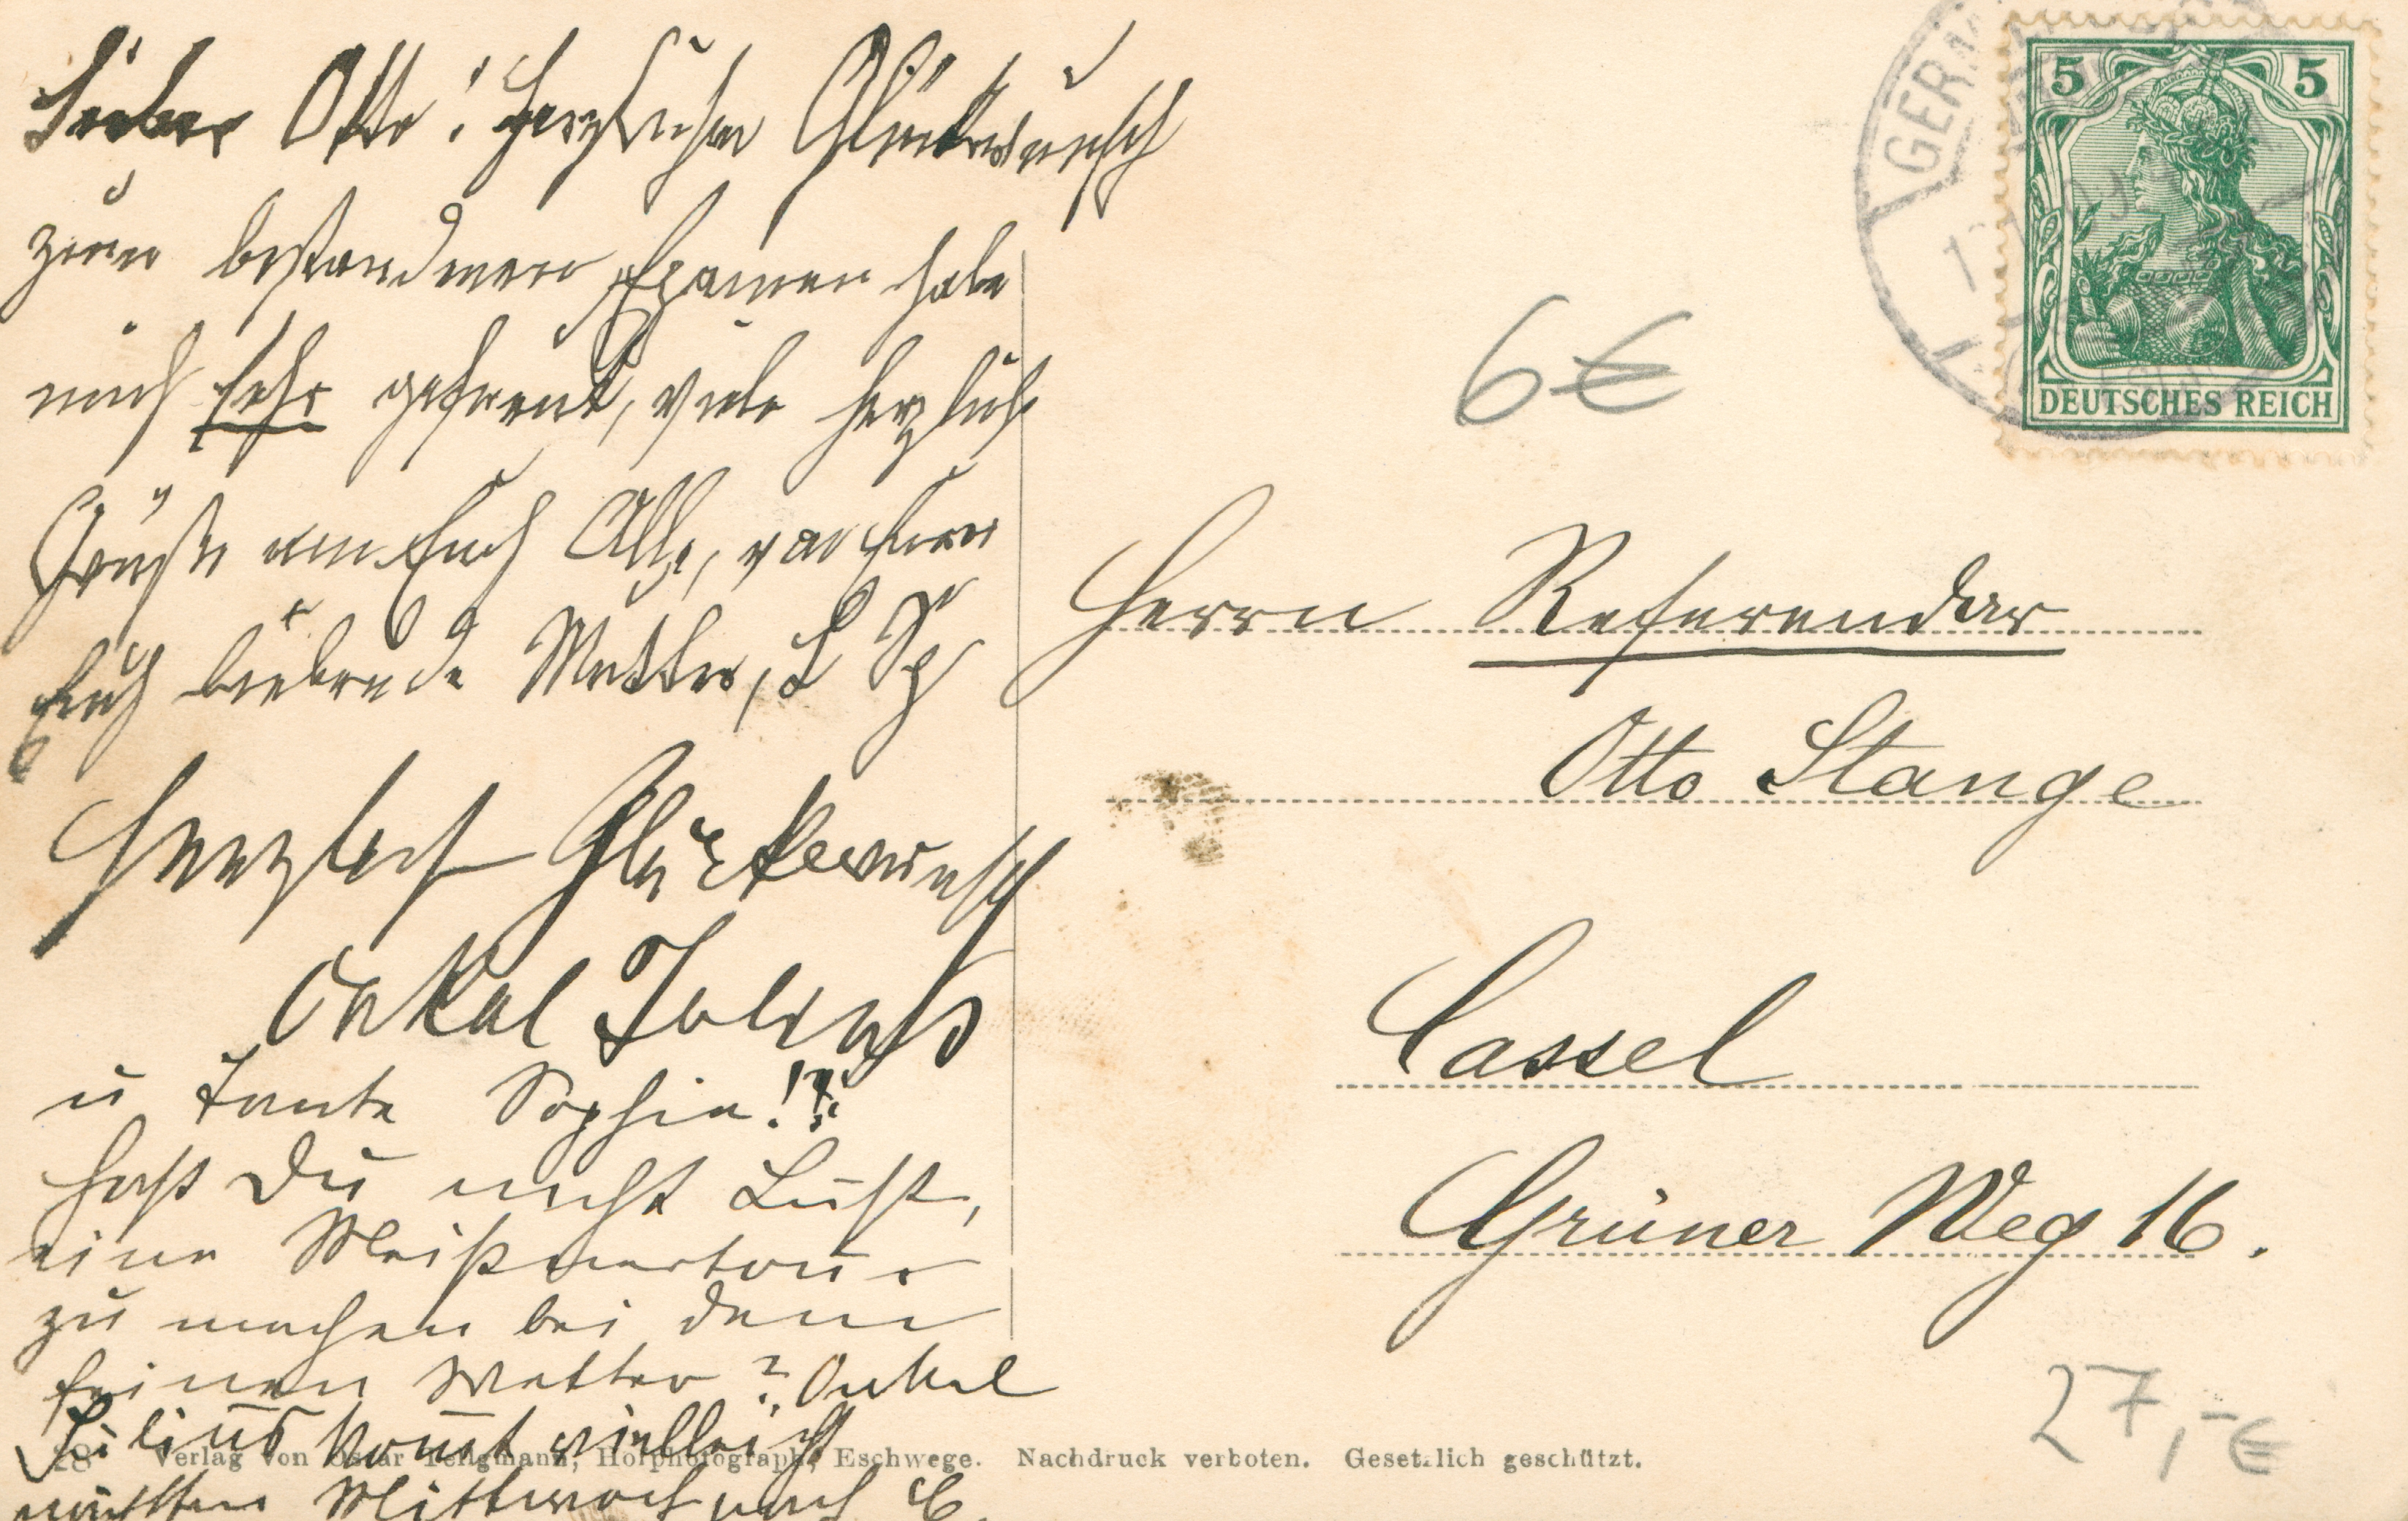 Lieber Otto! Herzlichen Glückwunsch
zum bestandenen Examen habe
mich sehr gefreut, viele herzliche
Grüße an Euch Alle, von Eurer
Euch liebende Mutter, L
Herzlich Glückwunsch
Onkel Julius
u Tante Sophie!
Hast Du nicht Lust,
eine Meißnertour
zu machen bei dem
feinen Wetter? Onkel
Julius kommt vielleicht
nächsten Mittwoch nach C.
GERM
5 5
DEUTSCHES REICH
6€
Herrn Referendar
Otto Stange
Cassel
Grüner Weg 16.
27,-€
28 Verlag von Oscar Tellgmann, Hofphotograph, Eschwege. Nachdruck verboten. Gesetzlich geschützt.